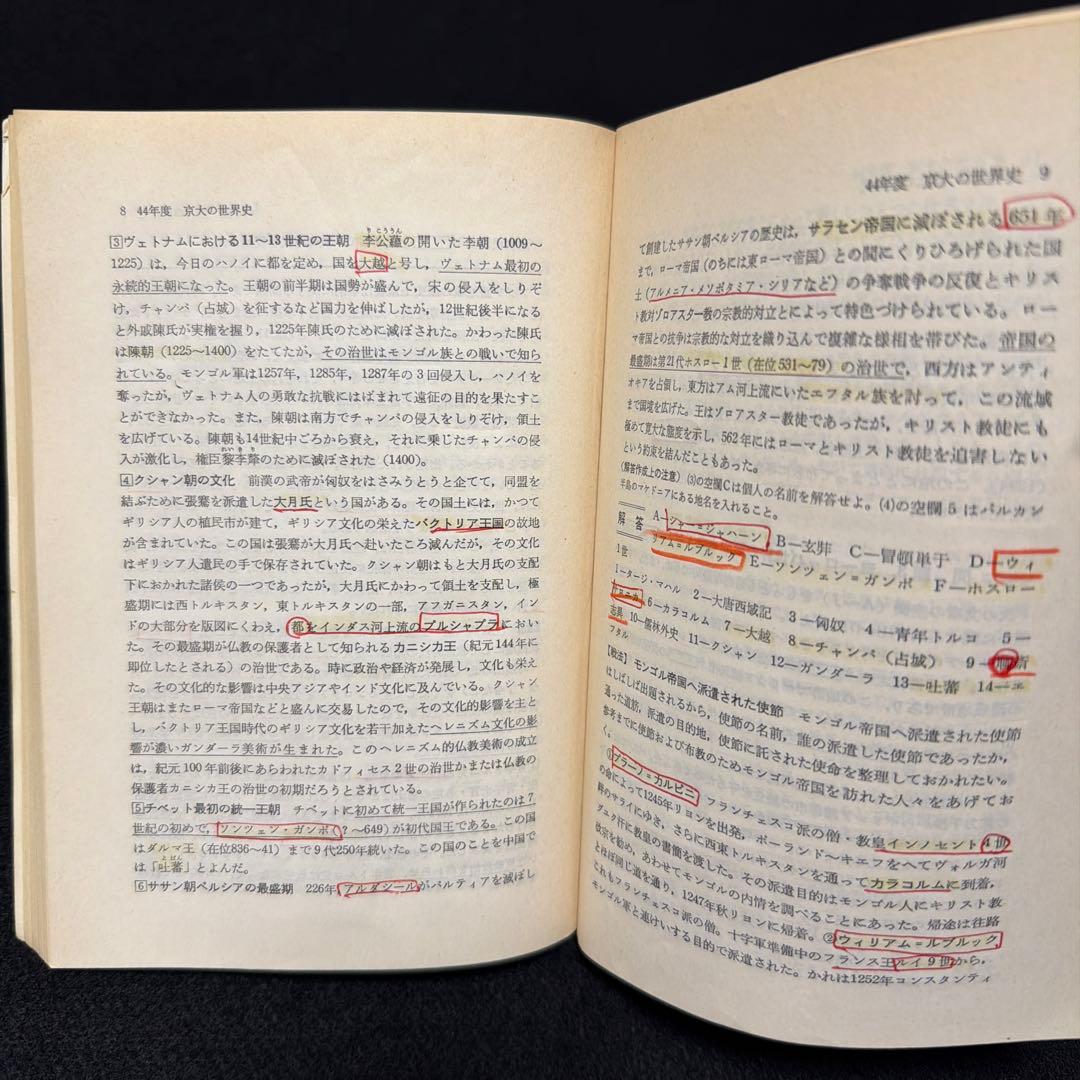 8 44年度 京大の世界史
3 ヴェトナムにおける11〜13世紀の王朝 李公蘊の開いた李朝(1009〜
1225)は,今日のハノイに都を定め,国を大越と号し,ヴェトナム最初の
永続的王朝になった。王朝の前半期は国勢が盛んで,宋の侵入をしりぞ
け,チャンパ(占城)を征するなど国力を伸ばしたが,12世紀後半になる
と外戚陳氏が実権を握り,1225年陳氏のために滅ぼされた。かわった陳氏
は陳朝(1225〜1400)をたてたが,その治世はモンゴル族との戦いで知ら
れている。モンゴル軍は1257年,1285年,1287年の3回侵入し,ハノイを
奪ったが,ヴェトナム人の勇敢な抗戦にはばまれて遠征の目的を果たすこ
とができなかった。また,陳朝は南方でチャンパの侵入をしりぞけ,領土
を広げている。陳朝も14世紀中ごろから衰え,それに乗じたチャンパの侵
入が激化し,権臣黎季犛のために滅ぼされた(1400)。
4 クシャン朝の文化 前漢の武帝が匈奴をはさみうとうと企てて,同盟を
結ぶために張騫を派遣した大月氏という国がある。その国土には,かつて
ギリシア人の植民市が建て,ギリシア文化の栄えたバクトリア王国の故地
が含まれていた。この国は張騫が大月氏へ赴いたころ滅んだが,その文化
はギリシア人遺民の手で保存されていた。クシャン朝はもと大月氏の支配
下におかれた諸侯の一つであったが,大月氏にかわって領土を支配し,極
盛期には西トルキスタン,東トルキスタンの一部,アフガニスタン,イン
ドの大部分を版図にくわえ,都をインダス河上流のプルシャプラにおい
た。その最盛期が仏教の保護者として知られるカニシカ王(紀元144年に
即位したとされる)の治世である。時に政治や経済が発展し,文化も栄え
た。その文化的な影響は中央アジアやインド文化に及んでいる。クシャン
王朝はまたローマ帝国などと盛んに交易したので,その文化的影響を主と
し,バクトリア王国時代のギリシア文化を若干加えたヘレニズム文化の影
響が濃いガンダーラ美術が生まれた。このヘレニズム的仏教美術の成立
は,紀元100年前後にあらわれたカドフィセス2世の治世かまたは仏教の
保護者カニシカ王の治世の初期だろうとされている。
5 チベット最初の統一王朝 チベットに初めて統一王国が作られたのは7
世紀の初めで,ソンツェン・ガンポ(?〜649)が初代国王である。この国
はダルマ王(在位836〜41)まで9代250年続いた。この国のことを中国で
は「吐蕃」とよんだ。
6 ササン朝ペルシアの最盛期 226年,アルダシールがパルティアを滅ぼし
44年度 京大の世界史 9
て創建したササン朝ペルシアの歴史は,サラセン帝国に滅ぼされる651年
まで,ローマ帝国(のちには東ローマ帝国)との間にくりひろげられた国
土(アルメニア・メソポタミア・シリアなど)の争奪戦争の反復とキリス
ト教対ゾロアスター教の宗教的対立とによって特色づけられている。ロー
マ帝国との抗争は宗教的な対立を織り込んで複雑な様相を帯びた。帝国の
最盛期は第21代ホスロー1世(在位531〜79)の治世で,西方はアンティ
オキアを占領し,東方はアム河上流にいたエフタル族を討って,この流域
まで国境を広げた。王はゾロアスター教徒であったが,キリスト教徒にも
極めて寛大な態度を示し,562年にはローマとキリスト教徒を迫害しない
という約束を結んだこともあった。
(解答作成上の注意)(3)の空欄Cは個人の名前を解答せよ。(4)の空欄5はバルカン
半島のマケドニアにある地名を入れること。
解答 A—シャー=ジャハーン B—玄奘 C—冒頓単于 D—ウィ
リアム=ルブルック E—ソンツェン=ガンポ F—ホスロー
1世
1—タージ・マハル 2—大唐西域記 3—匈奴 4—青年トルコ 5—
サロニカ 6—カラコルム 7—大越 8—チャンパ(占城) 9—聊斎
志異 10—儒林外史 11—クシャン 12—ガンダーラ 13—吐蕃 14—エ
フタル
【敷法】モンゴル帝国へ派遣された使節 モンゴル帝国へ派遣された使節
はしばしば出題されるから,使節の名前,誰の派遣した使節であったか,
通った道筋,派遣の目的地,使節に託された使命を整理しておかれたい。
参考までに使節および布教のためモンゴル帝国を訪れた人々をあげてお
く。
①プラーノ=カルピニ フランチェスコ派の僧・教皇インノセント4世
の命によって1245年リヨンを出発,ポーランド〜キエフをへてヴォルガ河
畔のサライにゆき,さらに西東トルキスタンを通ってカラコルムに到着,
グユク汗に教皇の書簡を渡した。その派遣目的はモンゴル人にキリスト教
改宗を勧め,あわせてモンゴルの内情を調べることにあった。帰途は往路
とほぼ同じ道を通り,1247年秋リヨンに帰着。②ウィリアム=ルブルック
これもフランチェスコ派の僧。十字軍準備中のフランス王ルイ9世から,
モンゴル軍と連けいする目的で派遣された。かれは1252年コンスタンティ